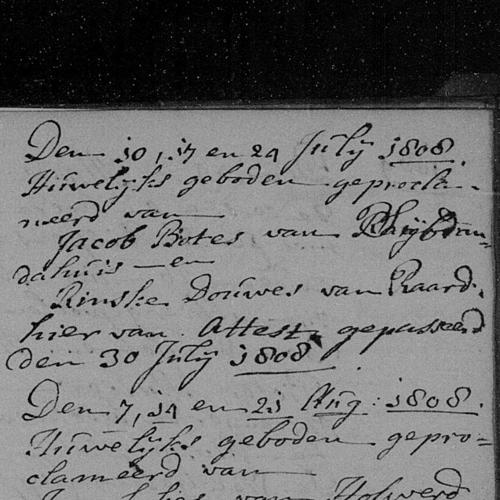 Den 10, 17 en 24 July 1808.
Huwelyks geboden geprocla-
meerd van
Jacob Botes van Rhijbdan-
dahuis - en
Rinske Douwes van Raard.
hier van Attest gepasseerd
den 30 July 1808
Den 7, 14 en 21 Aug: 1808.
Huwelyks geboden gepro-
clameerd van
van Holwerd